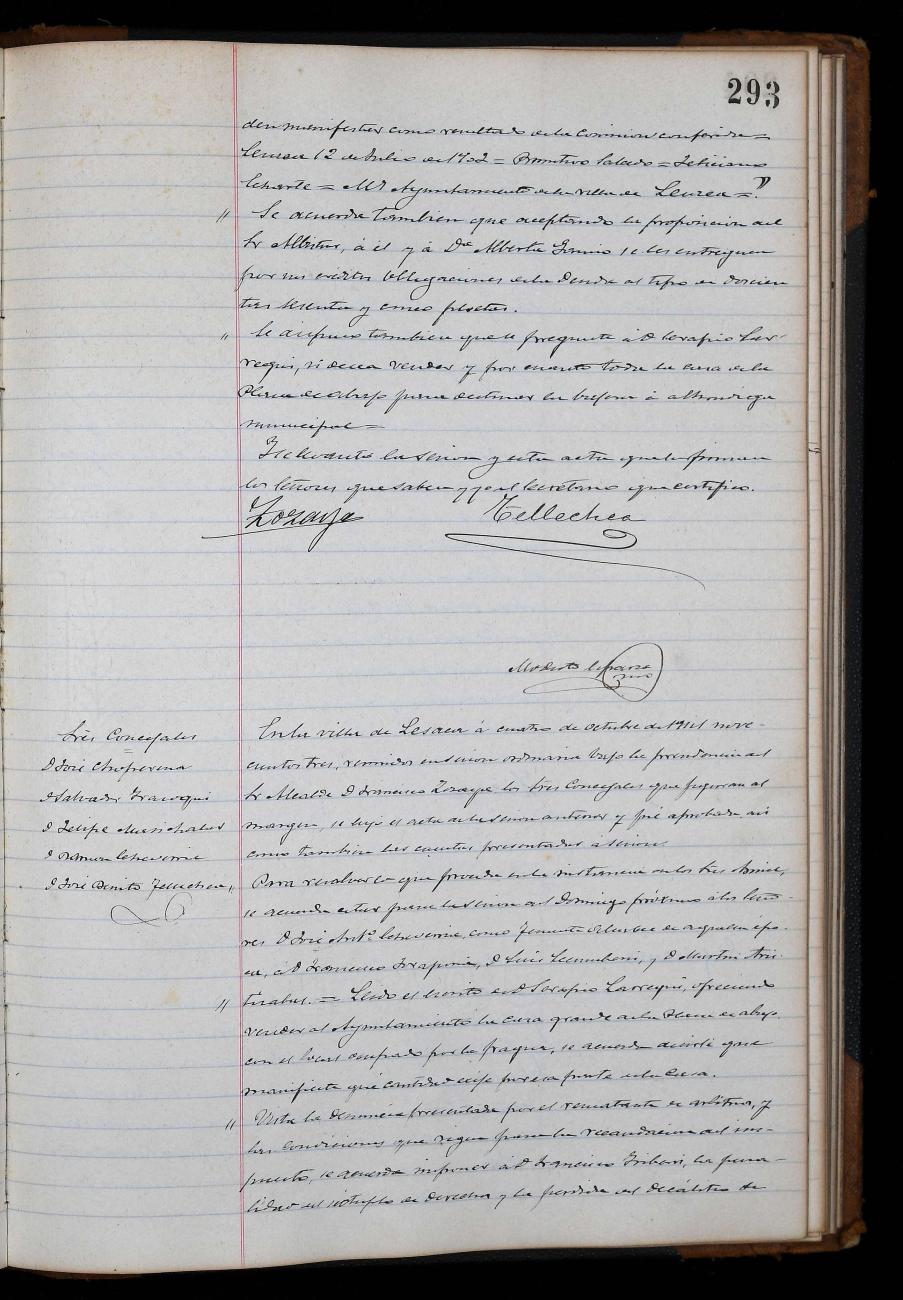 293
den manifestar como resultado de la Comision conferida =
Lesaca 12 de Julio de 1902 = Primitivo Salcedo = Feliciano
Echarte = M.I. Ayuntamiento de la villa de Lesaca =
" Se acuerda tambien que aceptando la proposicion del
Sr Albistur, á él y á Dª Alberta se les entreguen
por sus creditos Obligaciones de la Deuda al tipo de doscien
tas sesenta y cinco pesetas.
" Se dispuso tambien que se pregunte á D Serapio Lar-
regui, si desea vender y por cuanto toda la casa de la
Plaza de abajo para destinar la bajera á alhondiga
municipal =
Se levantó la sesion y esta acta que la firman
los Señores que saben y yo el Secretario que certifico.
Zozaya Tellechea
Modesto Esparza
Srio
Tres Concejales
D José
D Salvador Irazoqui
D Felipe Marichalar
D Ramon Echeverria
D José Benito Tellechea
En la villa de Lesaca á cuatro de octubre de mil nove-
cientos tres, reunidos en sesion ordinaria bajo la presidencia del
Sr Alcalde D Francisco Zozaya los tres Concejales que figuran al
margen, se leyó el acta de la sesion anterior y fué aprobada asi
como tambien las cuentas presentadas á sesion.
" Para resolver lo que proceda en la instancia de los tres
se acuerda citar para la sesion del Domingo próximo á los Seño-
res D José Antº Echeverria, como Teniente Alcalde en aquella épo-
ca, á D Francisco, D Luis Lecumberri, y D Martin
" = Leido el escrito de D Serapio Larregui, ofreciendo
vender al Ayuntamiento la casa grande de la Plaza de abajo
con el local ocupado por la fragua, se acuerda decirle que
manifieste qué cantidad exije por esa parte de la casa.
" Vista la denuncia presentada por el rematante de arbitrios, y
las condiciones que rigen para la recaudacion del im-
puesto, se acuerda imponer á D Francisco la pena-
lidad del séctuplo de derechos y la perdida del decálitro de